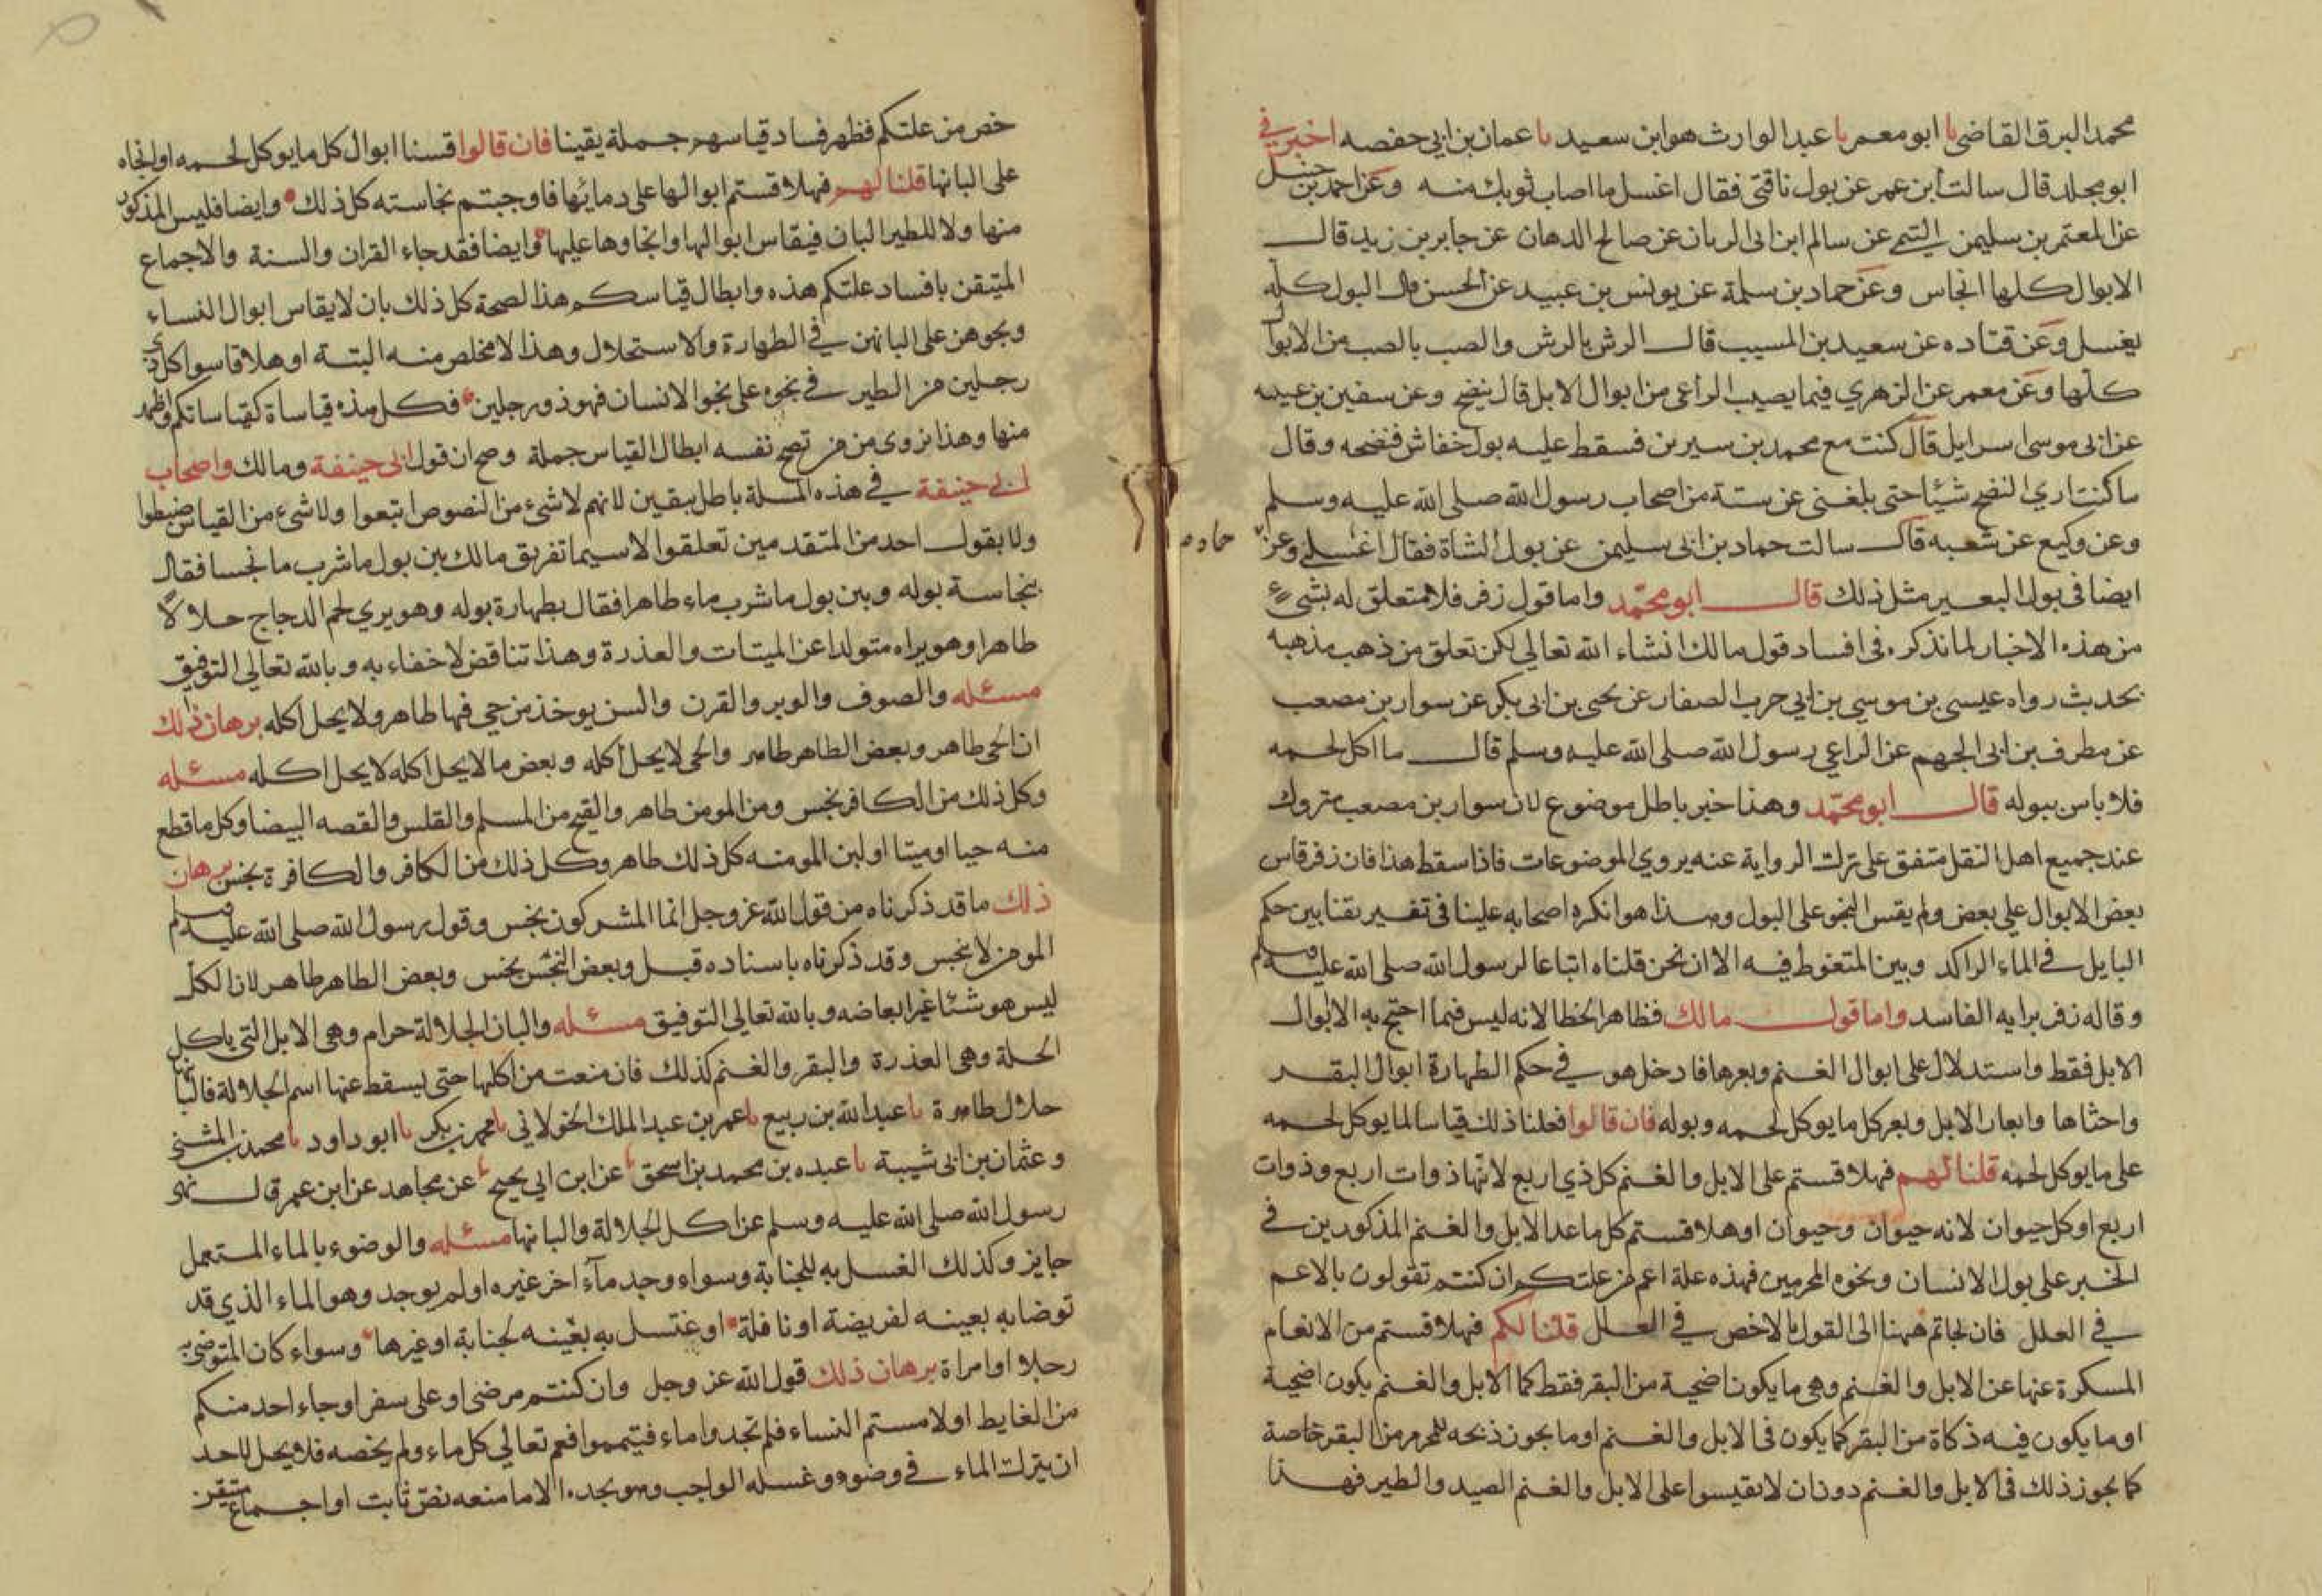 محمد البرق القاضي نا ابو معمر نا عبد الوارث هو ابن سعيد نا عمان بن ابي حفصه اخبرني
ابو مجلد قال سالت ابن عمر عن بول ناقتي فقال اغسل ما اصاب ثوبك منه وعن احمد بن حنبل
عن المعتمر بن سليمن التيمي عن سالم ابن ابي الربان عن صالح الدهان عن جابر بن زيد قال
الابوال كلها انجاس وعن حماد بن سلمة عن يونس بن عبيد عن الحسن قال البول كله
يغسل وعن قتاده عن سعيد بن المسيب قال الرش بالرش والصب بالصب من الابوال
كلها وعن معمر عن الزهري فيما يصيب الراعي من ابوال الابل قال ينضح وعن سفين بن عيينه
عن ابي موسى اسرايل قال كنت مع محمد بن سيرين فسقط عليه بول خفاش فنضحه وقال
ما كنت اري النضح شيئا حتى بلغني عن ستة من اصحاب رسول الله صلى الله عليه وسلم
وعن وكيع عن شعبه قال سالت حماد بن ابي سليمن عن بول الشاة فقال اغسله وعن حماد
ايضا في بول البعير مثل ذلك قال ابو محمد واما قول زفر فلا متعلق له بشيء
من هذه الاخبار لما نذكره في افساد قول مالك انشاء الله تعالي لكن تعلق من ذهب مذهبه
بحديث رواه عيسى بن موسي بن ابي حرب الصفار عن يحيى بن ابي بكر عن سوار بن مصعب
عن مطرف بن ابي الجهم عن الراعي رسول الله صلى الله عليه وسلم قال ما اكل لحمه
فلا باس ببوله قال ابو محمد وهذا خبر باطل موضوع لان سوار بن مصعب متروك
عند جميع اهل النقل متفق على ترك الرواية عنه يروي الموضوعات فاذا سقط هذا فان زفر قاس
بعض الابوال علي بعض ولم يقس النجو على البول وهذا هو انكره اصحابه علينا في تفريقنا بين حكم
البايل في الماء الراكد وبين المتغوط فيه الا ان نحن قلناه اتباعا لرسول الله صلى الله عليه وسلم
وقاله زفر برايه الفاسد واما قول مالك فظاهر الخطا لانه ليس فيما احتج به الا ابوال
الابل فقط واستدلال على ابوال الغنم وبعرها فادخل هو في حكم الطهارة ابوال البقر
واخثاها وابعار الابل وبعر كل ما يوكل لحمه وبوله فان قالوا فعلنا ذلك قياسا لما يوكل لحمه
على ما يوكل لحمه قلنا لهم فهلا قستم على الابل والغنم كل ذي اربع لانها ذوات اربع وذوات
اربع او كل حيوان لانه حيوان وحيوان او هلا قستم كل ما عدا الابل والغنم المذكورين في
الخبر على بول الانسان ونحوه المحرمين فهذه علة اعم من علتكم ان كنتم تقولون بالاعم
في العلل فان لجاتم ههنا الى القول بالاخص في العلل قلنا لكم فهلا قستم من الانعام
المسكرة عنها عن الابل والغنم وهي ما يكون اضحية من البقر فقط كما الابل والغنم يكون اضحية
او ما يكون فيه ذكاة من البقر كما يكون في الابل والغنم او ما يجوز ذبحه للمحرم من البقر خاصة
كما يجوز ذلك في الابل والغنم دون ان لا يقيسوا على الابل والغنم الصيد والطير فهذا
خص من علتكم فظهر فساد قياسهم جملة يقينا فان قالوا قسنا ابوال كل ما يوكل لحمه او انجاه
على البانها قلنا لهم فهلا قستم ابوالها على دمائها فاوجبتم نجاسته كل ذلك وايضا فليس المذكور
منها ولا للطير البان فيقاس ابوالها وانجاوها عليها وايضا فقد جاء القران والسنة والاجماع
المتيقن بافساد علتكم هذه وابطال قياسكم هذا لصحة كل ذلك بان لا يقاس ابوال النساء
ونجوهن على البانهن في الطهارة والاستحلال وهذا لا مخلص منه البتة او هلا قاسوا كل ذي
رجلين من الطير في نجوه على نجو الانسان فهو ذو رجلين فكل هذه قياساة كقياساتكم واظهر
منها وهذا نروي من من تصح نفسه ابطال القياس جملة وصح ان قول ابي حنيفة ومالك واصحاب
ابي حنيفة في هذه المسلة باطل بيقين لانهم لا شيء من النصوص اتبعوا ولا شيء من القياس ضبطوا
ولا بقول احد من المتقدمين تعلقوا لا سيما تفريق مالك بين بول ما شرب ما نجسا فقال
بنجاسة بوله وبين بول ما شرب ماء طاهرا فقال بطهارة بوله وهو يري لحم الدجاج حلالا
طاهرا وهو يراه متولدا عن الميتات والعذرة وهذا تناقض لا خفاء به وبالله تعالي التوفيق
مسئله والصوف والوبر والقرن والسن يوخذ من حي فهما طاهر ولا يحل اكله برهان ذلك
ان الحي طاهر وبعض الطاهر طاهر والحي لا يحل اكله وبعض ما لا يحل اكله لا يحل اكله مسئله
وكل ذلك من الكافر نجس ومن المومن طاهر والقيح من المسلم والقلس والقصه البيضا وكل ما قطع
منه حيا او ميتا او لبن المومنه كل ذلك طاهر وكل ذلك من الكافر والكافرة نجس برهان
ذلك ما قد ذكرناه من قول الله عز وجل انما المشركون نجس وقول رسول الله صلى الله عليه وسلم
المومن لا ينجس وقد ذكرناه باسناده قبل وبعض النجس نجس وبعض الطاهر طاهر لان الكل
ليس هو شئا غير ابعاضه وبالله تعالي التوفيق مسئله والبان الجلالة حرام وهي الابل التي ياكل
الجلة وهي العذرة والبقر والغنم كذلك فان منعت من اكلها حتى يسقط عنها اسم الجلالة فالبانها
حلال طاهرة نا عبد الله بن ربيع نا عمر بن عبد الملك الخولاني نا محمد بن بكر نا ابو داود نا محمد بن المثني
وعثمان بن ابي شيبة نا عبده بن محمد بن اسحق عن ابن ابي نجيح عن مجاهد عن ابن عمر قال نهى
رسول الله صلى الله عليه وسلم عن اكل الجلالة والبانها مسئله والوضوء بالماء المستعمل
جايز وكذلك الغسل به للجنابة وسواء وجد مآء اخر غيره او لم يوجد وهو الماء الذي قد
توضا به بعينه لفريضة او نافلة او غتسل به بعينه لجنابة او غيرها وسواء كان المتوضي به
رحلا او امراة برهان ذلك قول الله عز وجل وان كنتم مرضى او على سفر او جاء احد منكم
من الغايط او لامستم النساء فلم تجدوا ماء فتيمموا فعم تعالي كل ماء ولم يخصه فلا يحل لاحد
ان يترك الماء في وضوءه وغسله الواجب وهو يجده الا ما منعه نص ثابت او اجماع متيقن